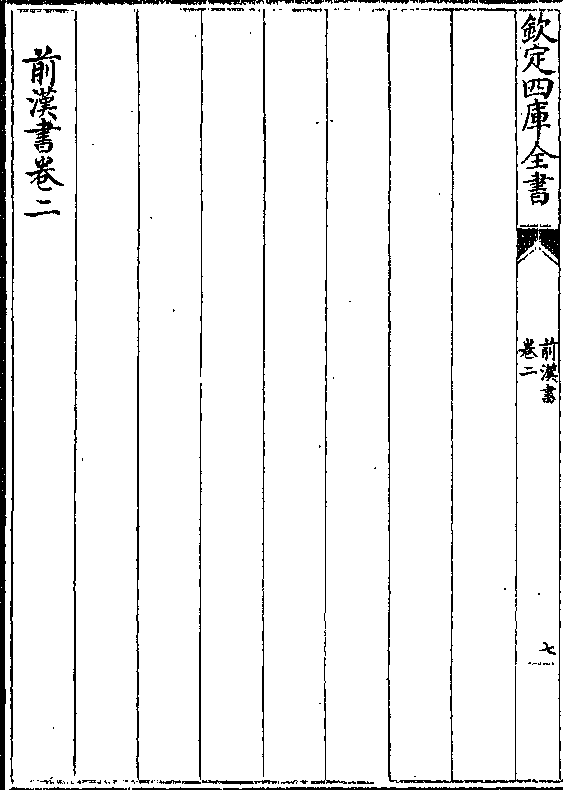 欽定四庫全書
前漢書
卷二
七
前漢書卷二